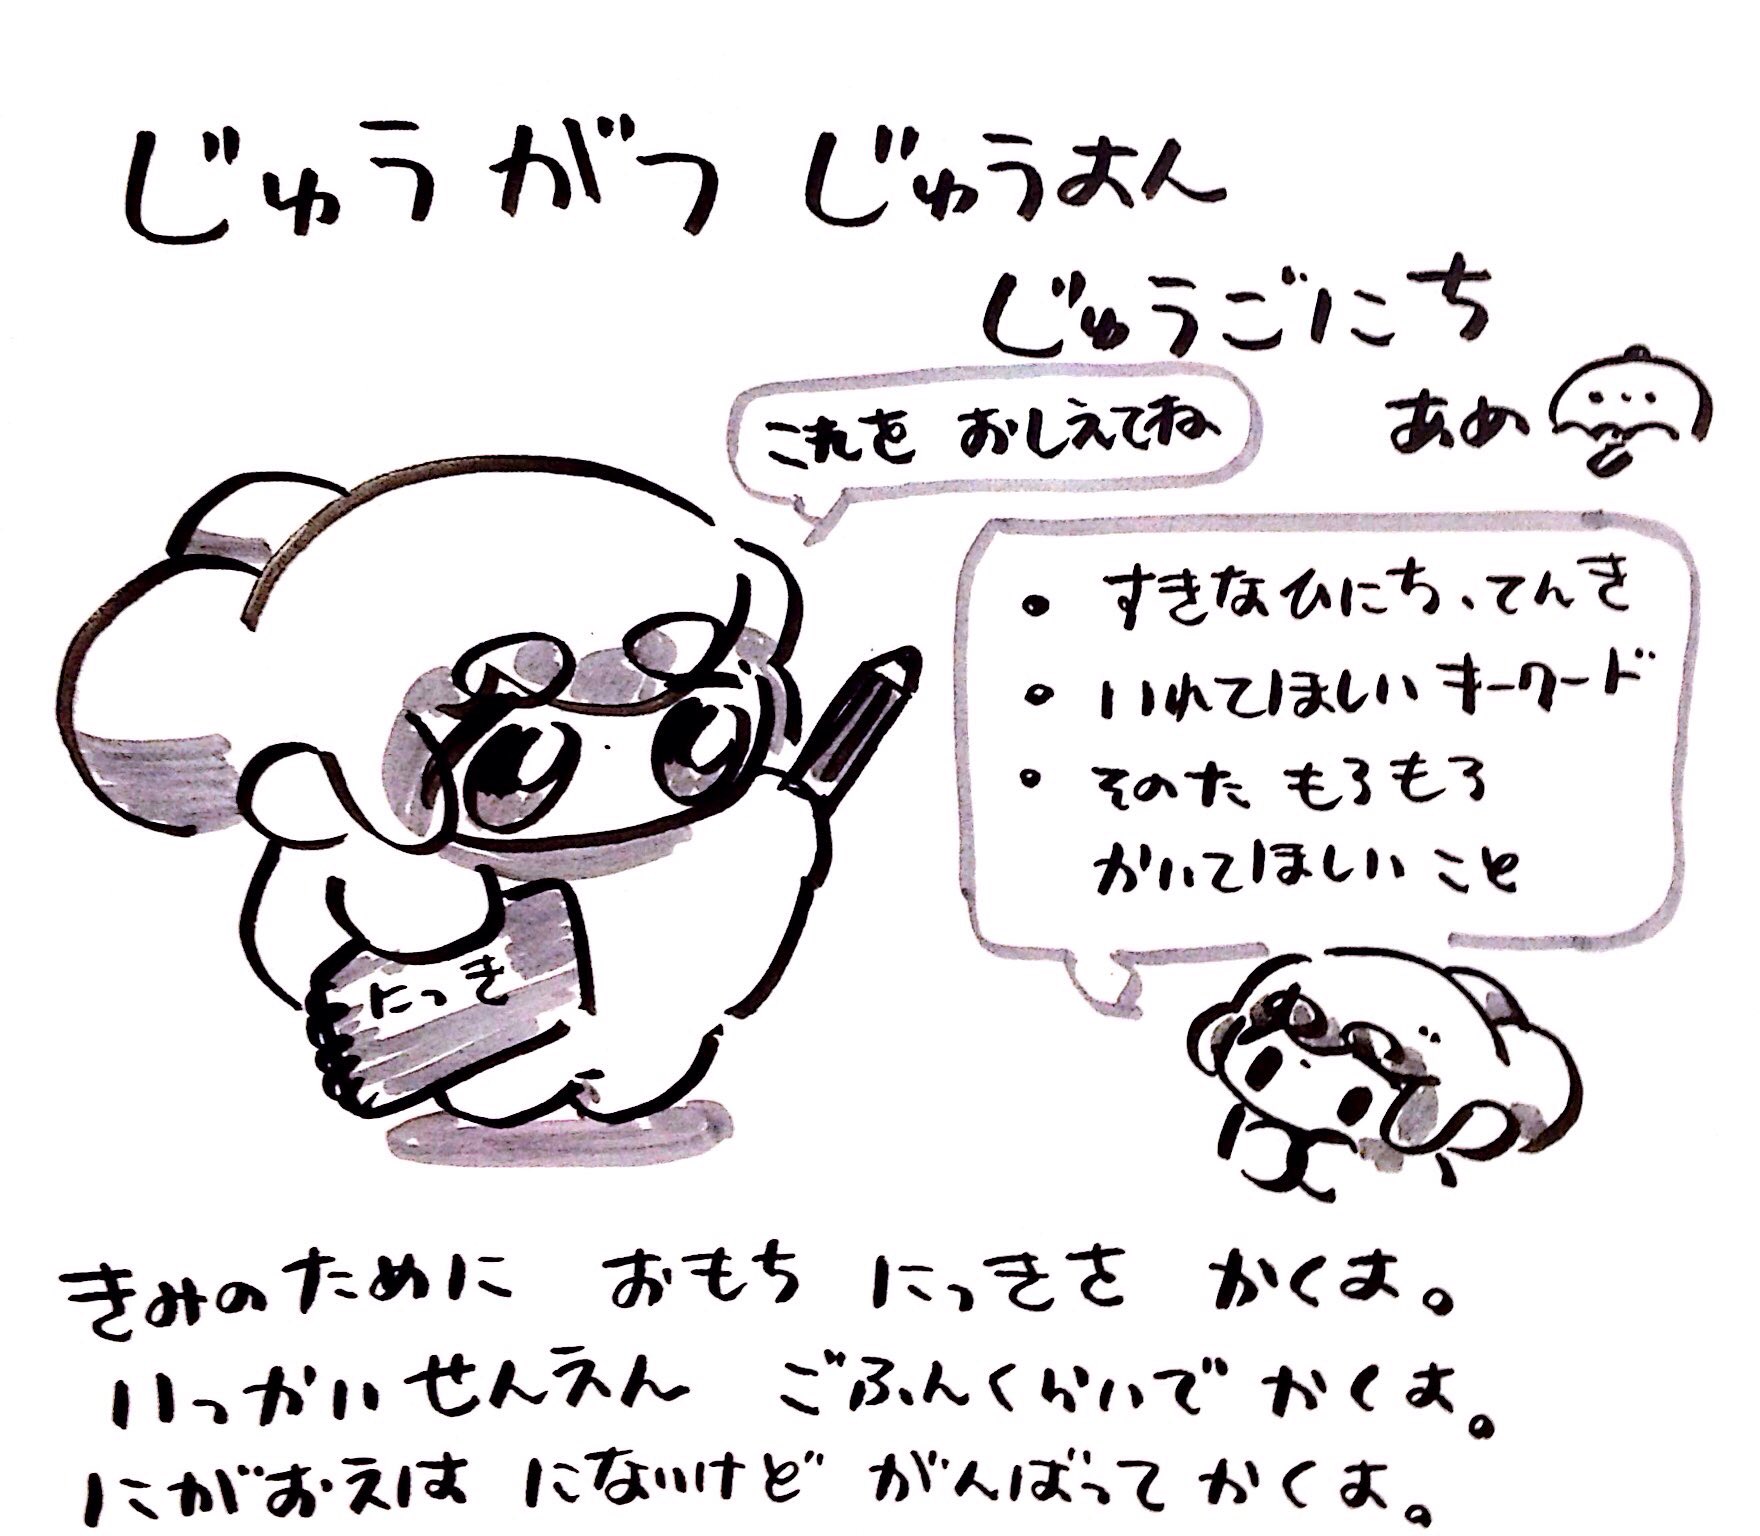 じゅうがつ じゅうよん
じゅうごにち
あめ
これを おしえてね
・ すきなひにち、てんき
・ いれてほしい キーワード
・ そのた もろもろ
かいてほしい こと
にっき
きみのために おもち にっきを かくよ。
いっかいせんえん ごふんくらいで かくよ。
にがおえは にないけど がんばって かくよ。